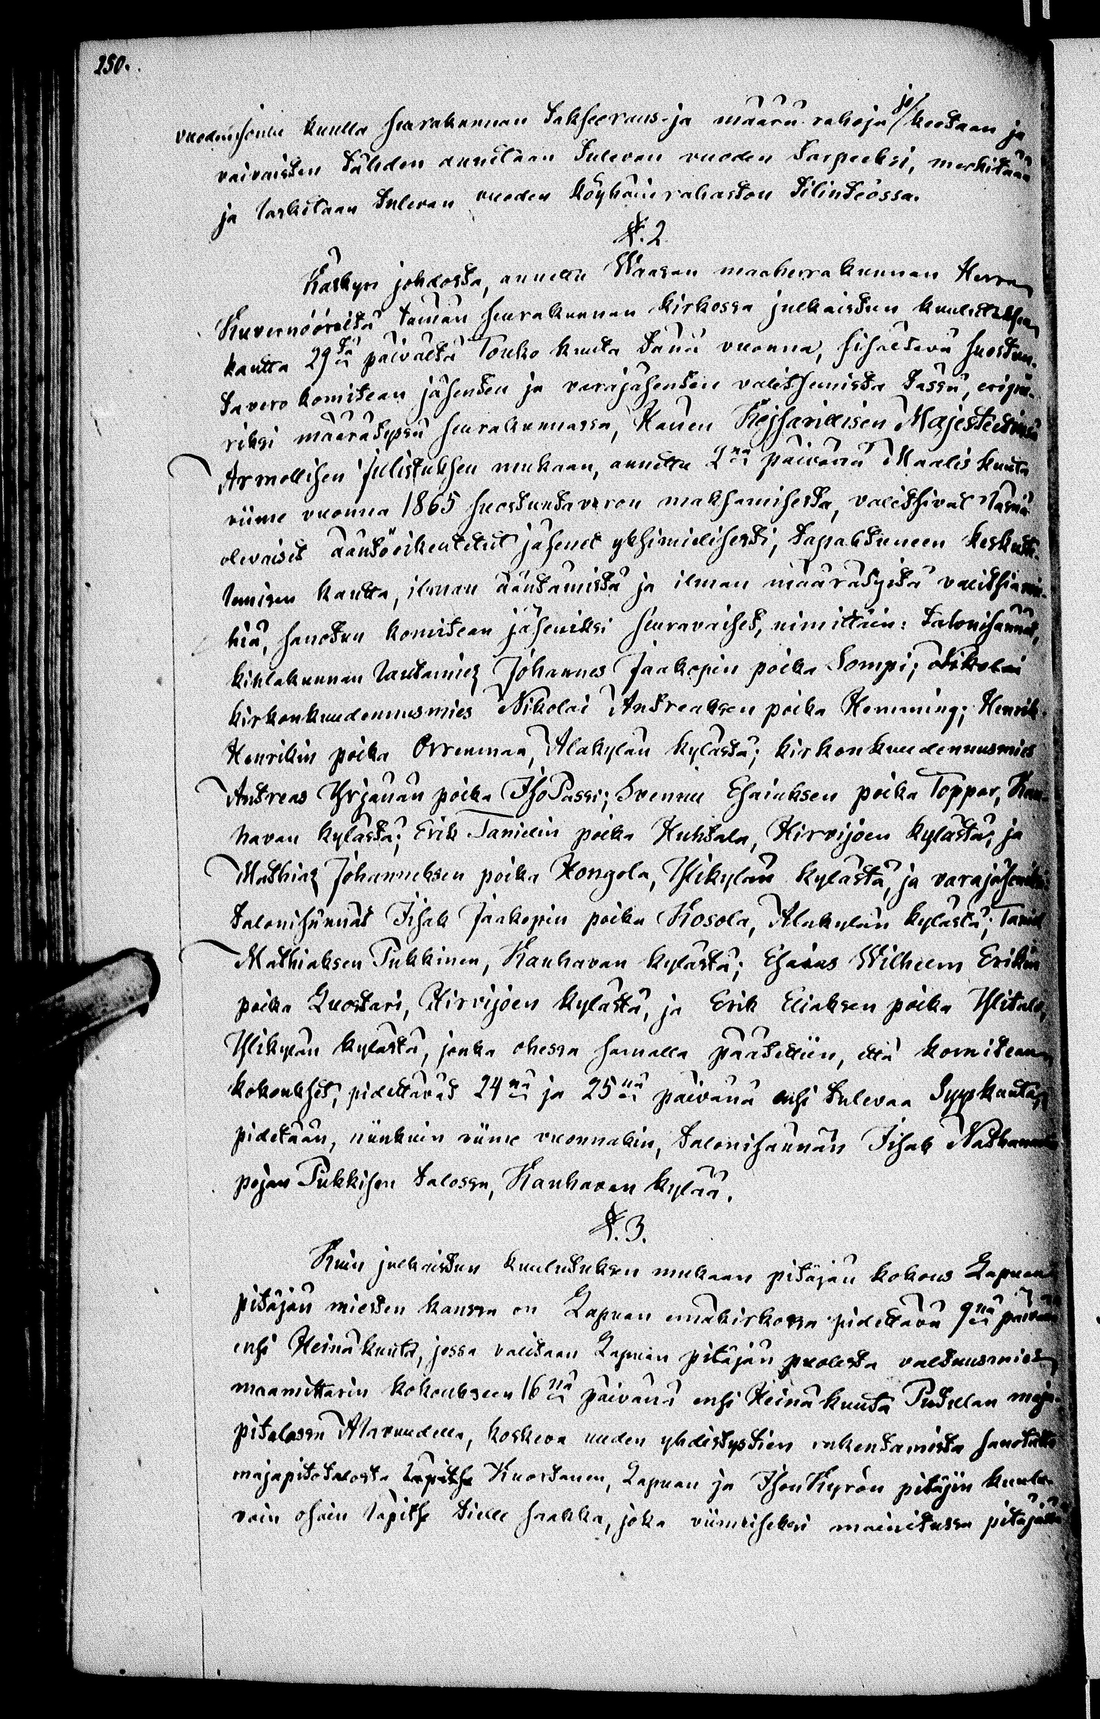 250.
vuodenhonlu kuulla seurakunnan takseeraus- ja määrä rahoja jo/ keotaan ja
vaivaisten tähden annetaan tulevan vuoden tarpeeksi, merkitään
ja lasketaan tulevan vuoden köyhäin rahaston tilinteossa.
§. 2
Käskyn johdosta, annettu Waasan maaherrakunnan Herra
Kuvernööriltä tämän seurakunnan kirkossa julkaistun kuulutuksen
kautta 29tä päivältä Touko kuuta tänä vuonna, sisältävä suostun-
tavero komitean jäsenten ja varajäsenten valitsemista tässä, eripä-
riksi määrätyssä seurakunnassa, Hänen Kejsarillisen Majesteetinsa
Armollisen julistuksen mukaan, annettu 2na päivänä Maalis kuuta
viime vuonna 1865 suostuntaveron maksamisesta, valitsivat läsnä
olevaiset ääntöoikeutetut jäsenet yksimielisesti, tapahtuneen keskust-
lemisen kautta, ilman ääntämistä ja ilman määrätystä valitsiami-
hiä, sanotun komitean jäseniksi seuravaiset, nimittäin: talonisännät,
kihlakunnan lautamies Johannes Jaakopin poika Sompi; Nikolai
kirkonkuudennusmies Nikolai Andreaksen poika Hemming; Henrik
Henrikin poika Orrenmaa, Alakylän kylästä; kirkonkuudennusmies
Andreas Yrjänän poika Iso Passi; Svennu Esaiaksen poika Toppar, Kau-
havan kylästä; Erik Tanielin poika Huhtala, Hirvijoen kylästä; ja
Mathias Johanneksen poika Kongola, Ylikylän kylästä, ja varajäseniksi
talonisännät Isak Jaakopin poika Kosola, Alakylän kylästä; Taniel
Mathiaksen Pukkinen, Kauhavan kylästä; Esaias Wilhelm Erikin
poika Luostari, Hirvijoen kylästä, ja Erik Eliaksen poika Ylitalo,
Ylikylän kylästä, jonka ohessa samalla päätettiin, että komitean
kokoukset, pidettävät 24nä ja 25nä päivänä ensi tulevaa Syyskuuta,
pidetään, niinkuin viime vuonnakin, talonisännän Isak Nathanaelin
pojan Pukkisen talossa, Kauhavan kylää.
§. 3.
Kuin julkaistun kuulutuksen mukaan pitäjän kokous Lapuan
pitäjän miesten kanssa on Lapuan emäkirkossa pidettävä 9nä päivänä
ensi Heinäkuuta, jossa valitaan Lapuan pitäjän puolesta valtuusmies
maamittarin kokoukseen 16nä päivänä ensi Heinä-kuuta Putullan maja-
pitalossa Alavuudella, koskeva uuden yhdistystien rakentamista sanotusta
majapitotalosta läpitse Kuortanen, Lapuan ja Ison Kyrön pitäjiin kuulu-
vain osain läpitse tielle saakka, joka viimeiseksi mainitussa pitäjässä